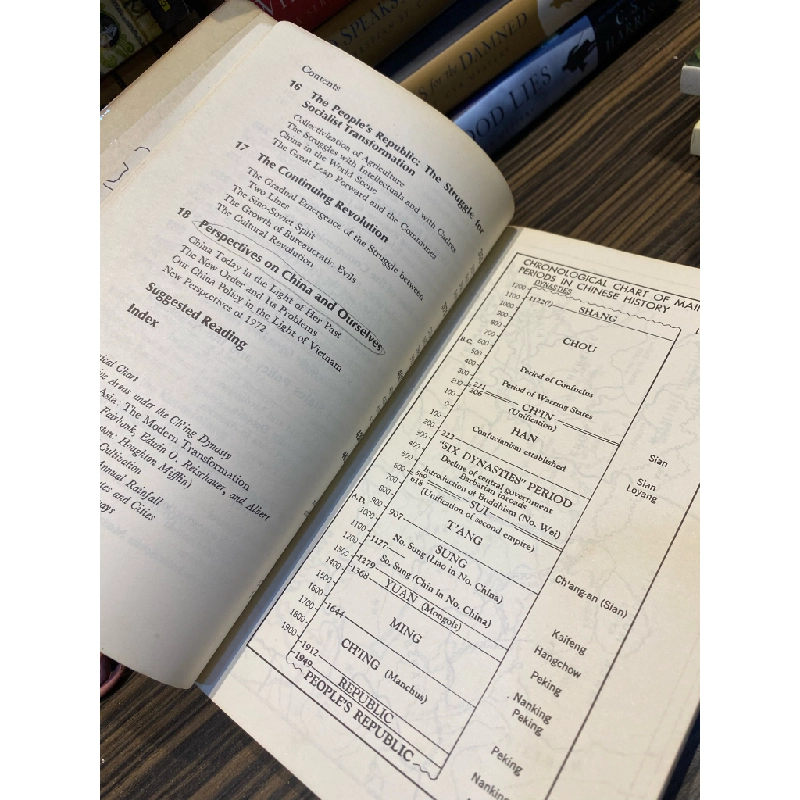 SPEAKS
for the DAMNED
OOD LIES
C. S.
HARRIS
Contents
16 The People's Republic: The Struggle for
Socialist Transformation
Collectivization of Agriculture
The Struggles with Intellectuals and with Cadres
China in the World Scene
The Great Leap Forward and the Communes
17 The Continuing Revolution
The Gradual Emergence of the Struggle between
Two Lines
The Sino-Soviet Split
The Growth of Bureaucratic Evils
The Cultural Revolution
18 Perspectives on China and Ourselves
China Today in the Light of Her Past
The New Order and Its Problems
Our China Policy in the Light of Vietnam
New Perspectives of 1972
Suggested Reading
Index
ical Chart
Areas under the Ch'ing Dynasty
Asia: The Modern Transformation
Fairbank, Edwin O. Reischauer, and Albert
Houghton Mifflin)
Cultivation
nnual Rainfall
tes and Cities
ways
CHRONOLOGICAL CHART OF MAIN
PERIODS IN CHINESE HISTORY
DYNASTIES
1200
1100 1122(?) SHANG
1000
900
800 CHOU
700
B.C. 600
500 Period of Confucius
400
300 Period of Warring States
200 221 CH'IN
206 (Unification)
100 HAN Sian
0
100 Confucianism established Sian
200 Loyang
300 "SIX DYNASTIES" PERIOD
400 Decline of central government
500 barbarian incoads
600 Introduction of Buddhism (No. Wei)
618 SUI
700 (Unification of second empire)
800 T'ANG Ch'ang-an (Sian)
A.D. 900 907
1000 SUNG
1100 No. Sung (Liao in No. China) Kaifeng
1200 1127 So. Sung (Chin in No. China) Hangchow
1300 1279 YUAN (Mongols) Peking
1400 1368
1500 MING Nanking
1600 Peking
1700 1644
1800 CH'ING (Manchus) Peking
1900 1912 REPUBLIC Nanking
1949 PEOPLE'S REPUBLIC